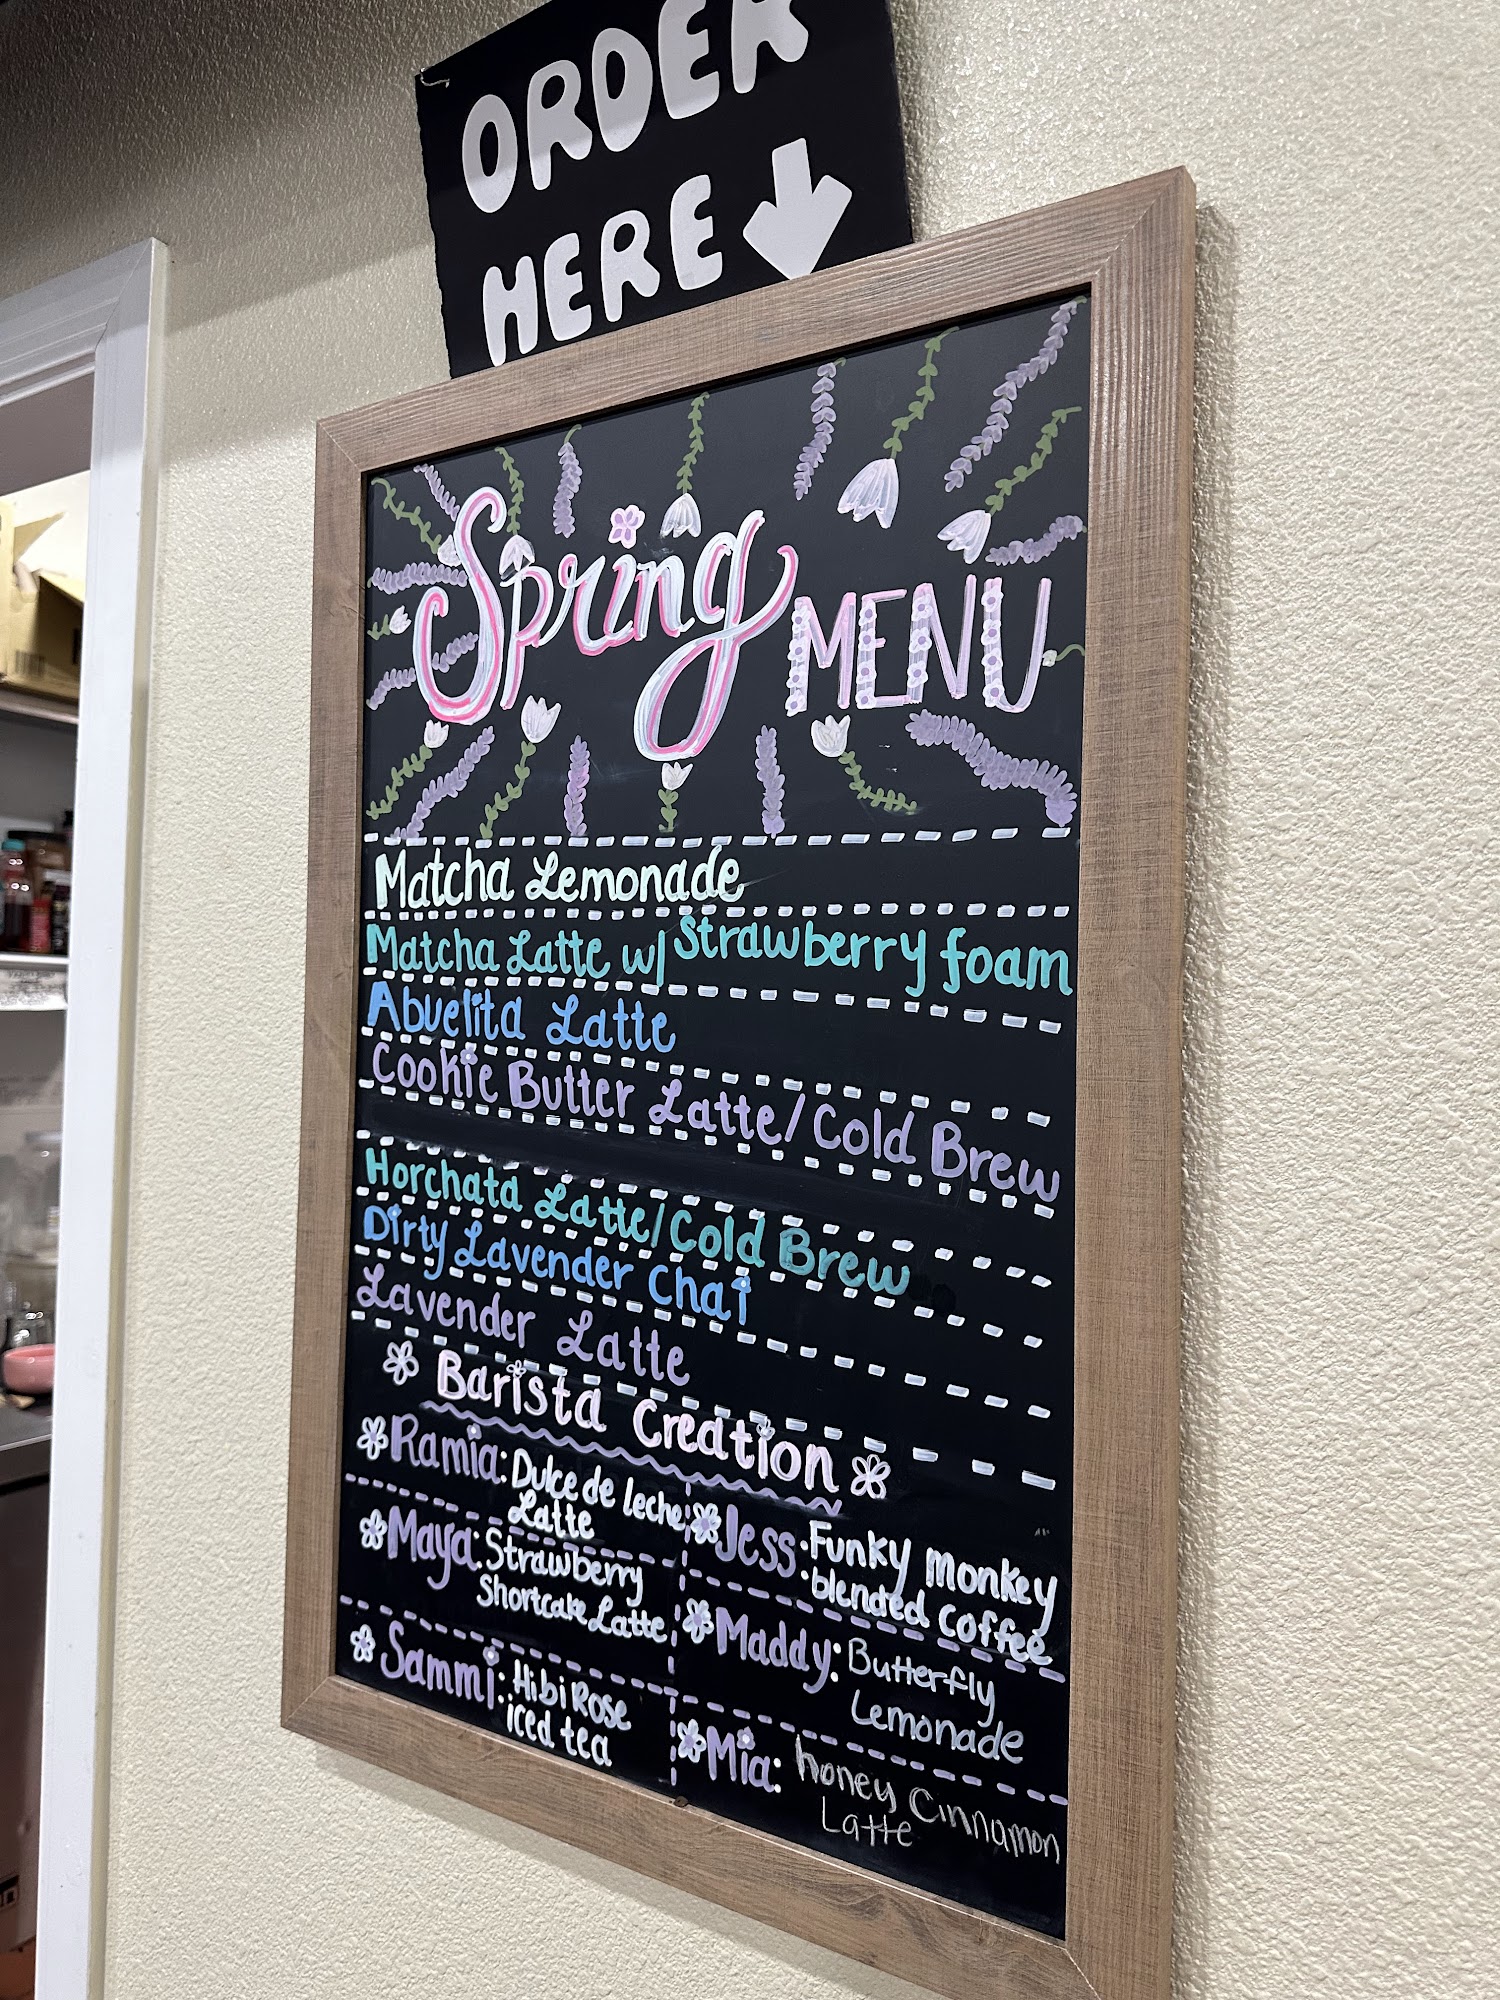 ORDER
HERE
Spring MENU
Matcha Lemonade
Matcha Latte w/ Strawberry foam
Abuelita Latte
Cookie Butter Latte/Cold Brew
Horchata Latte/Cold Brew
Dirty Lavender Chai
Lavender Latte
Barista Creation
Ramia: Dulce de leche
Latte
Maya: Strawberry
Shortcake Latte
Sammi: Hibi Rose
iced tea
Jess: Funky Monkey
blended coffee
Maddy: Butterfly
Lemonade
Mia: honey Cinnamon
Latte